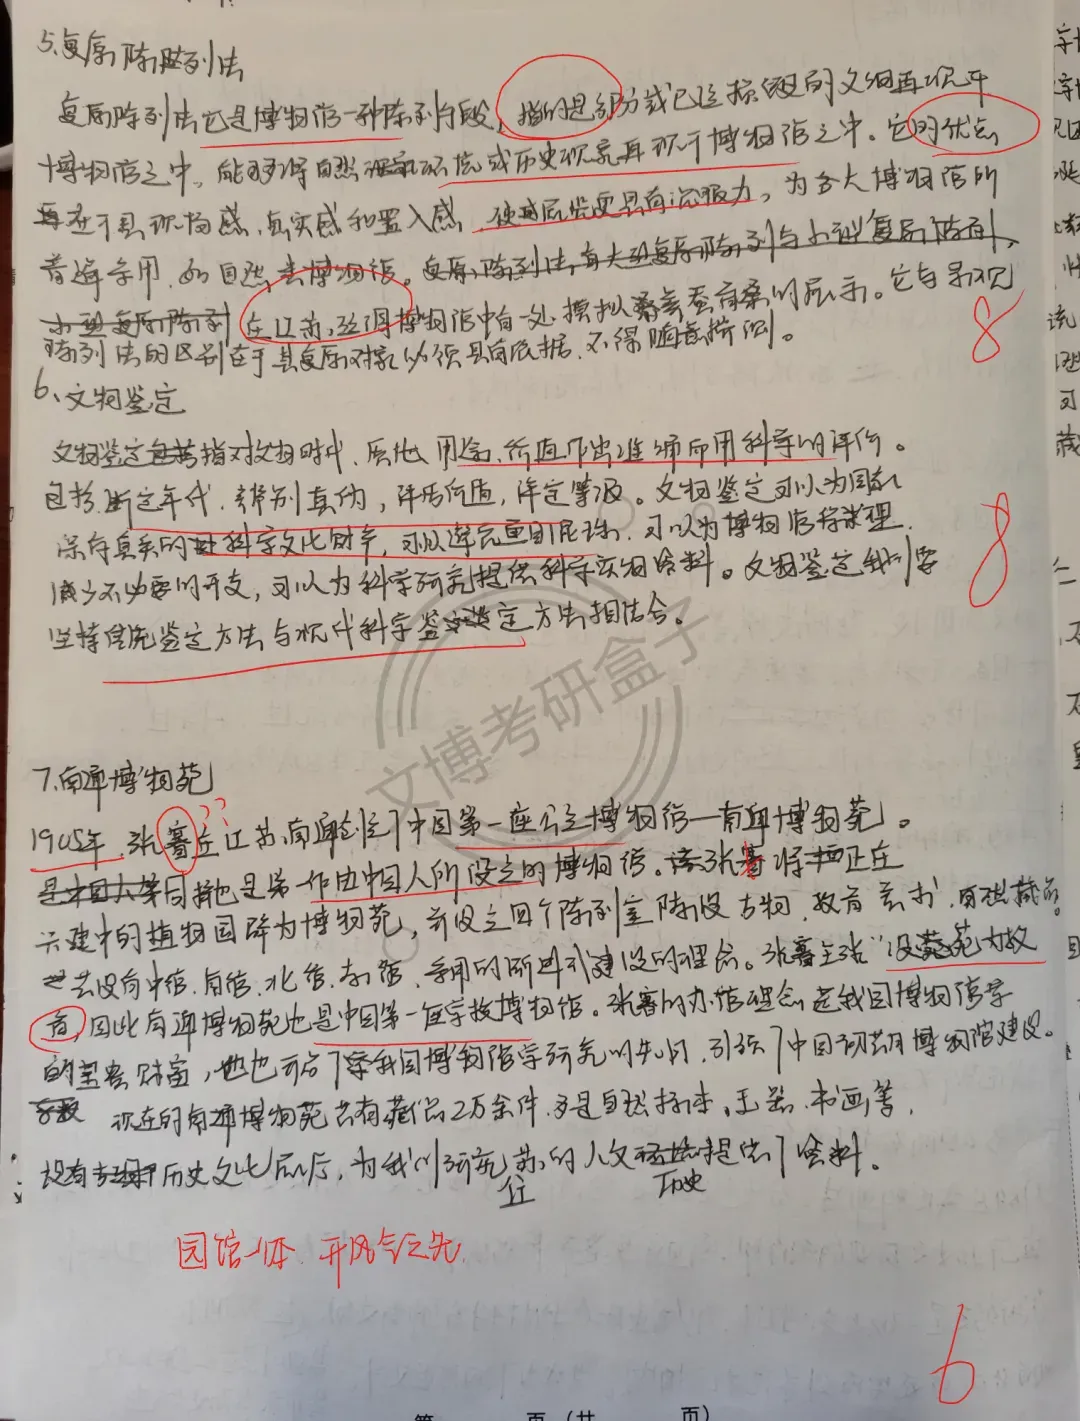 5.复原陈列法
复原陈列法它是博物馆一种陈列手段,指的是部分或已经损毁的文物再现于
博物馆之中。能够将自然状态或历史现象再现于博物馆之中。它的优点
在于具现场感,真实感和置入感,使展览更具有说服力,为各大博物馆所
普遍采用,如自然类博物馆。复原陈列法,有大型复原陈列与小型复原陈列,
小型复原陈列 在江苏,丝绸博物馆中有一处模拟养蚕的展示。它与景观
陈列法的区别在于其复原对象必须具有依据,不得随意捏造。
8
6、文物鉴定
文物鉴定指对文物时代、质地、用途、价值作出准确而科学的评价。
包括断定年代,辨别真伪,评估价值,评定等级。文物鉴定可以为国家
保存真实的科学文化财产,可以避免鱼目混珠,可以为博物馆
减少不必要的开支,可以为科学研究提供科学实物资料。文物鉴定我们要
坚持传统鉴定方法与现代科学鉴定方法相结合。
8
文博考研盒子
7.南通博物苑
??
1905年,张謇在江苏南通创立了中国第一座公立博物馆—南通博物苑。
同时也是第一个由中国人所设立的博物馆。张謇将正在
兴建中的植物园辟为博物苑,并设立四个陈列室陈设古物、教育
去设有中馆、南馆、北馆、东馆,建设的理念。张謇主张"设苑为教
育,因此南通博物苑也是中国第一座学校博物馆。张謇的办馆理念是我国博物馆学
的宝贵财富,他也开启了我国博物馆学研究的先河,引领了中国初期博物院建设。
现在的南通博物苑共有藏品2万余件,多是自然标本,玉器,书画等,
设有 历史文化展厅,为我们研究江苏的人文历史提供了资料。
园馆一体、开风气之先
6
第 页(共 页)